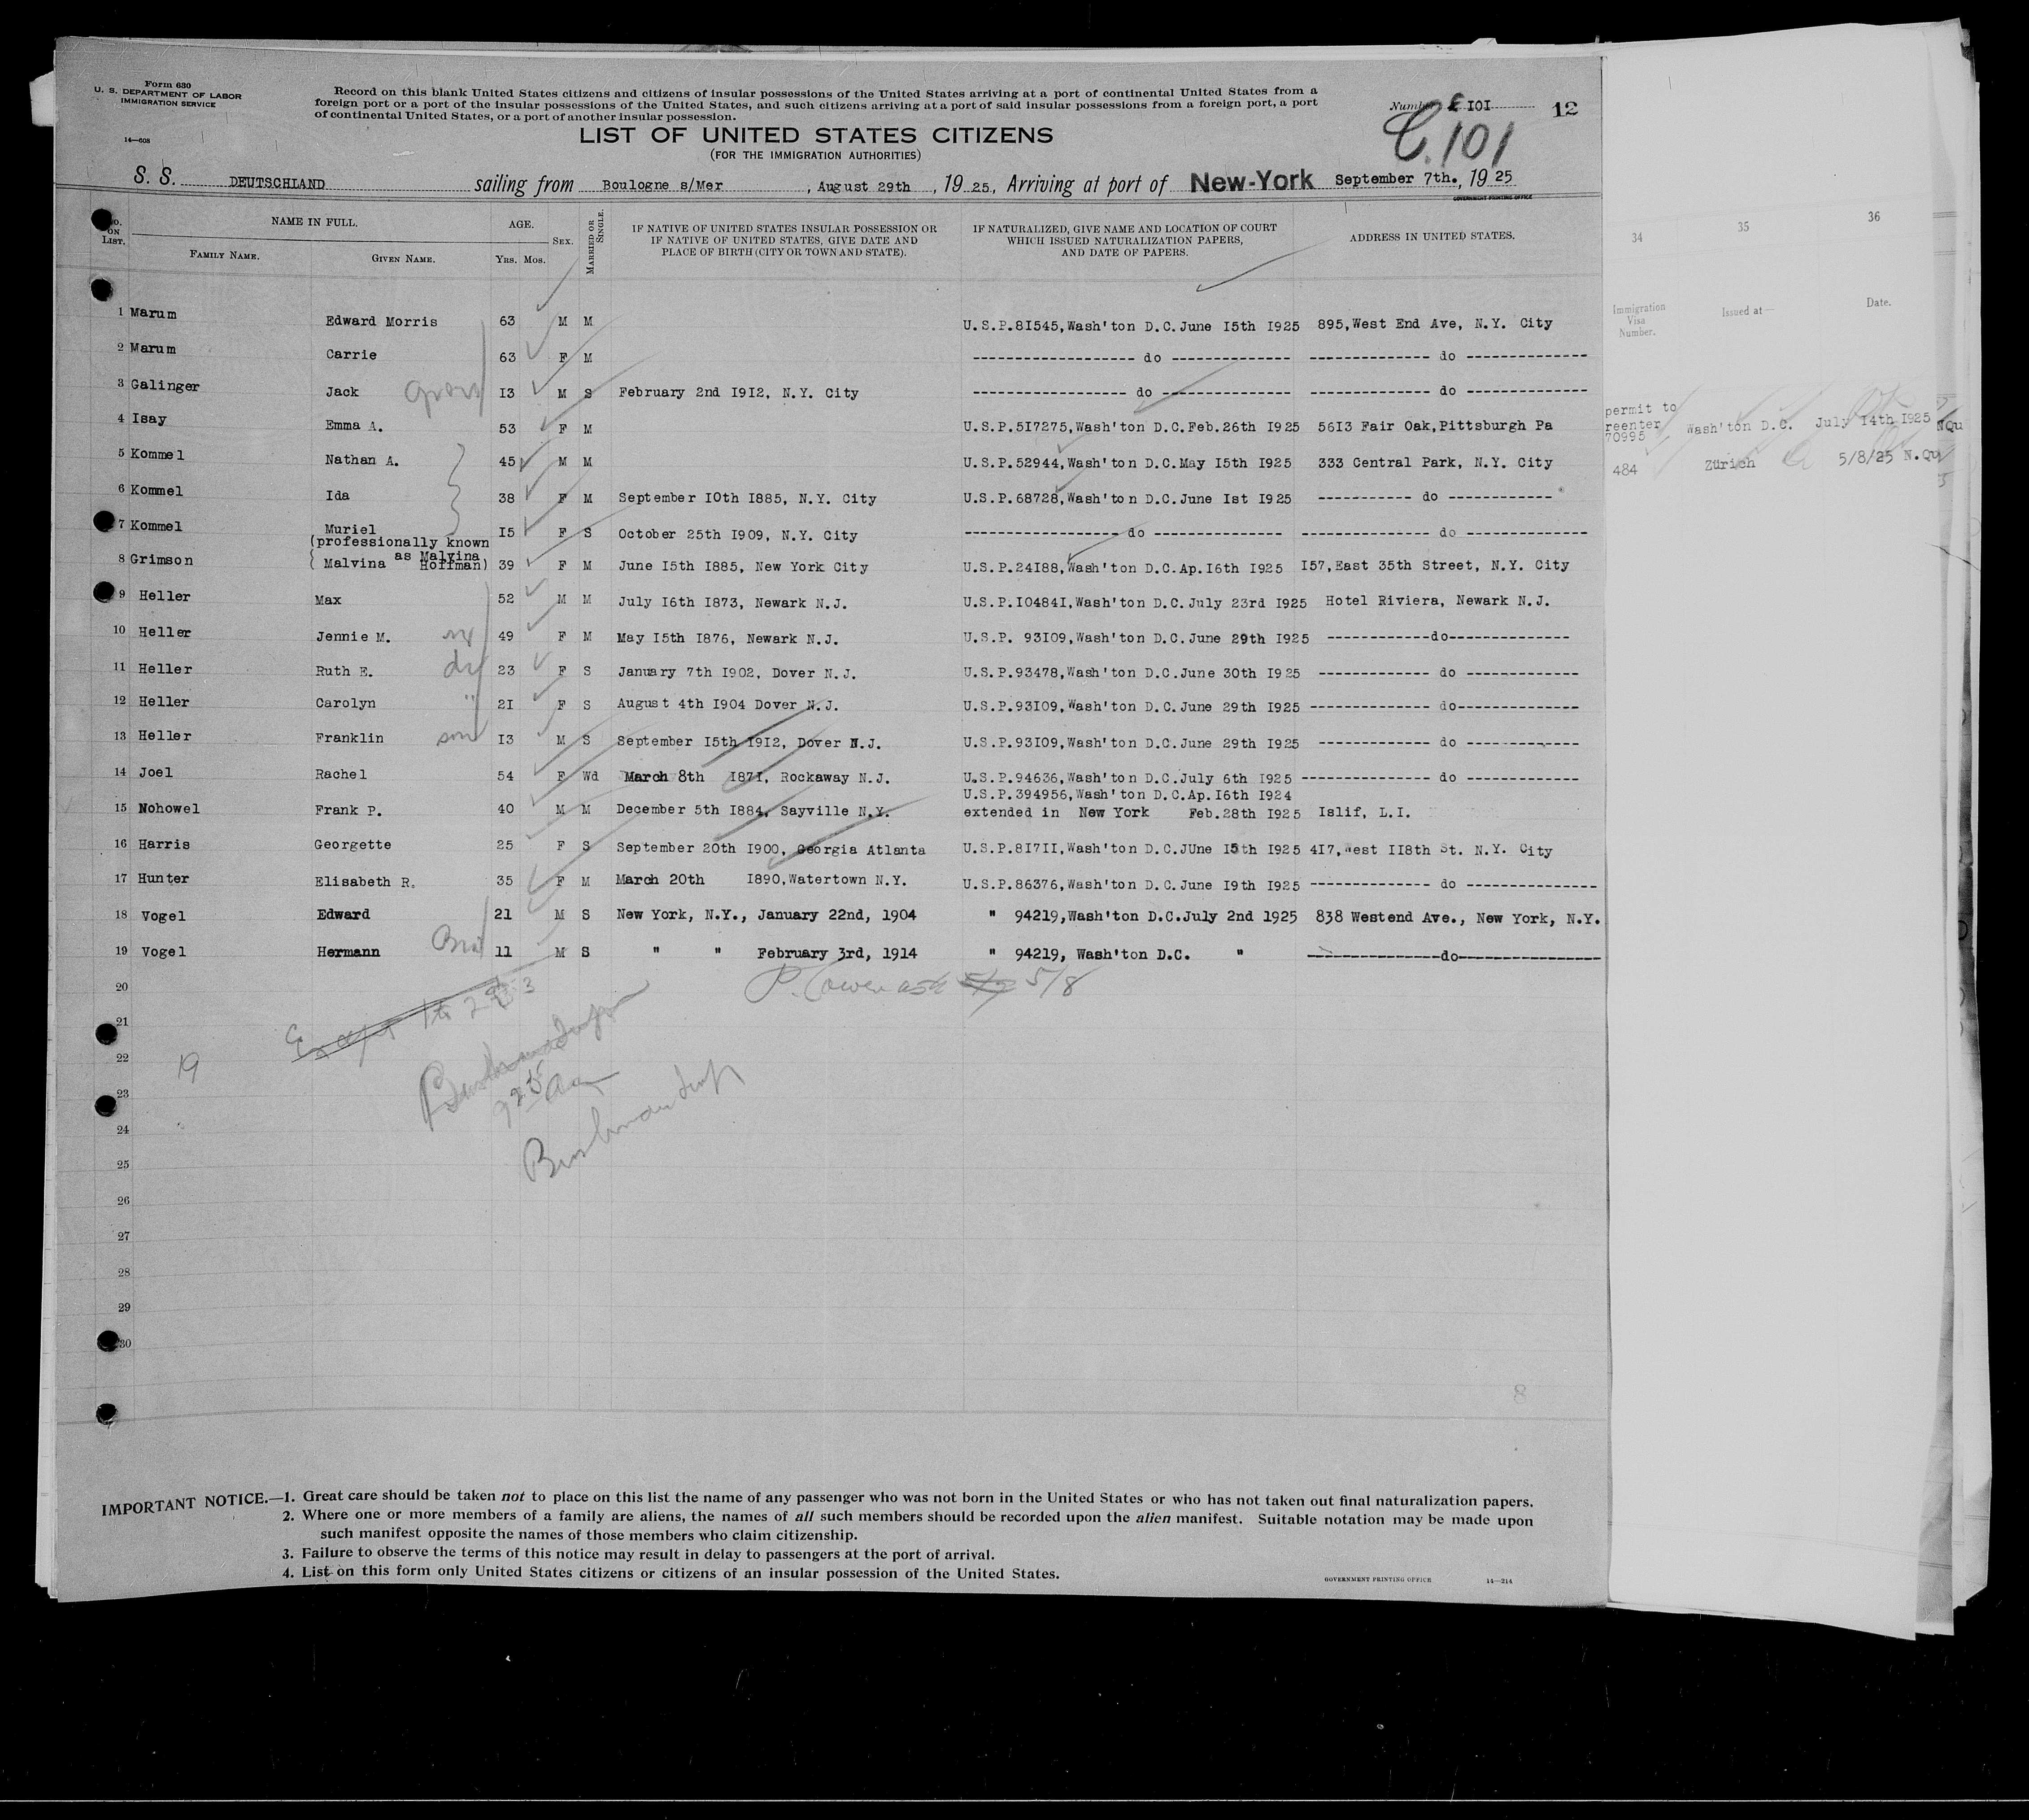 Form 630
U. S. DEPARTMENT OF LABOR
IMMIGRATION SERVICE
14—608
Record on this blank United States citizens and citizens of insular possessions of the United States arriving at a port of continental United States from a
foreign port or a port of the insular possessions of the United States, and such citizens arriving at a port of said insular possessions from a foreign port, a port
of continental United States, or a port of another insular possession.
Number IOI
12
C.101
LIST OF UNITED STATES CITIZENS
(FOR THE IMMIGRATION AUTHORITIES)
S. S. DEUTSCHLAND sailing from Boulogne s/Mer, August 29th, 19 25, Arriving at port of New-York September 7th., 19 25
GOVERNMENT PRINTING OFFICE
NO. ON LIST. NAME IN FULL. FAMILY NAME. GIVEN NAME. AGE. YRS. MOS. SEX. MARRIED OR SINGLE. IF NATIVE OF UNITED STATES INSULAR POSSESSION OR IF NATIVE OF UNITED STATES, GIVE DATE AND PLACE OF BIRTH (CITY OR TOWN AND STATE). IF NATURALIZED, GIVE NAME AND LOCATION OF COURT WHICH ISSUED NATURALIZATION PAPERS, AND DATE OF PAPERS. ADDRESS IN UNITED STATES.
34 35 36
Immigration Visa Number. Issued at— Date.
1 Marum Edward Morris 63 M M U.S.P.8I545,Wash'ton D.C.June I5th I925 895,West End Ave, N.Y. City
2 Marum Carrie 63 F M do do
3 Galinger Jack I3 M S February 2nd I9I2, N.Y. City do do
4 Isay Emma A. 53 F M U.S.P.5I7275,Wash'ton D.C.Feb.26th I925 56I3 Fair Oak,Pittsburgh Pa
permit to reenter 70995 Wash'ton D.C. July I4th I925
5 Kommel Nathan A. 45 M M U.S.P.52944,Wash'ton D.C.May I5th I925 333 Central Park, N.Y. City
484 Zürich 5/8/25 N.Qu
6 Kommel Ida 38 F M September IOth I885, N.Y. City U.S.P.68728,Wash'ton D.C.June Ist I925 do
7 Kommel Muriel I5 F S October 25th I909, N.Y. City do do
(professionally known as Malvina Hoffman)
8 Grimson Malvina 39 F M June I5th I885, New York City U.S.P.24I88,Wash'ton D.C.Ap.I6th I925 I57,East 35th Street, N.Y. City
9 Heller Max 52 M M July I6th I873, Newark N.J. U.S.P.IO484I,Wash'ton D.C.July 23rd I925 Hotel Riviera, Newark N.J.
10 Heller Jennie M. 49 F M May I5th I876, Newark N.J. U.S.P. 93IO9,Wash'ton D.C.June 29th I925 do
11 Heller Ruth E. 23 F S January 7th I902, Dover N.J. U.S.P.93478,Wash'ton D.C.June 30th I925 do
12 Heller Carolyn " 2I F S August 4th I904 Dover N.J. U.S.P.93IO9,Wash'ton D.C.June 29th I925 do
13 Heller Franklin son I3 M S September I5th I9I2, Dover N.J. U.S.P.93IO9,Wash'ton D.C.June 29th I925 do
14 Joel Rachel 54 F Wd March 8th I87I, Rockaway N.J. U.S.P.94636,Wash'ton D.C.July 6th I925 do
U.S.P.394956,Wash'ton D.C.Ap.I6th I924
15 Nohowel Frank P. 40 M M December 5th I884, Sayville N.Y. extended in New York Feb.28th I925 Islif, L.I.
16 Harris Georgette 25 F S September 20th I900, Georgia Atlanta U.S.P.8I7II,Wash'ton D.C.JUne I5th I925 4I7,West II8th St. N.Y. City
17 Hunter Elisabeth R. 35 F M March 20th I890,Watertown N.Y. U.S.P.86376,Wash'ton D.C.June I9th I925 do
18 Vogel Edward 21 M S New York, N.Y., January 22nd, 1904 " 94219,Wash'ton D.C.July 2nd 1925 838 Westend Ave., New York, N.Y.
19 Vogel Hermann 11 M S " " February 3rd, 1914 " 94219, Wash'ton D.C. " do
20
21
22
19
23
24
25
26
27
28
29
30
8
IMPORTANT NOTICE.—1. Great care should be taken not to place on this list the name of any passenger who was not born in the United States or who has not taken out final naturalization papers.
2. Where one or more members of a family are aliens, the names of all such members should be recorded upon the alien manifest. Suitable notation may be made upon
such manifest opposite the names of those members who claim citizenship.
3. Failure to observe the terms of this notice may result in delay to passengers at the port of arrival.
4. List on this form only United States citizens or citizens of an insular possession of the United States.
GOVERNMENT PRINTING OFFICE 14—214